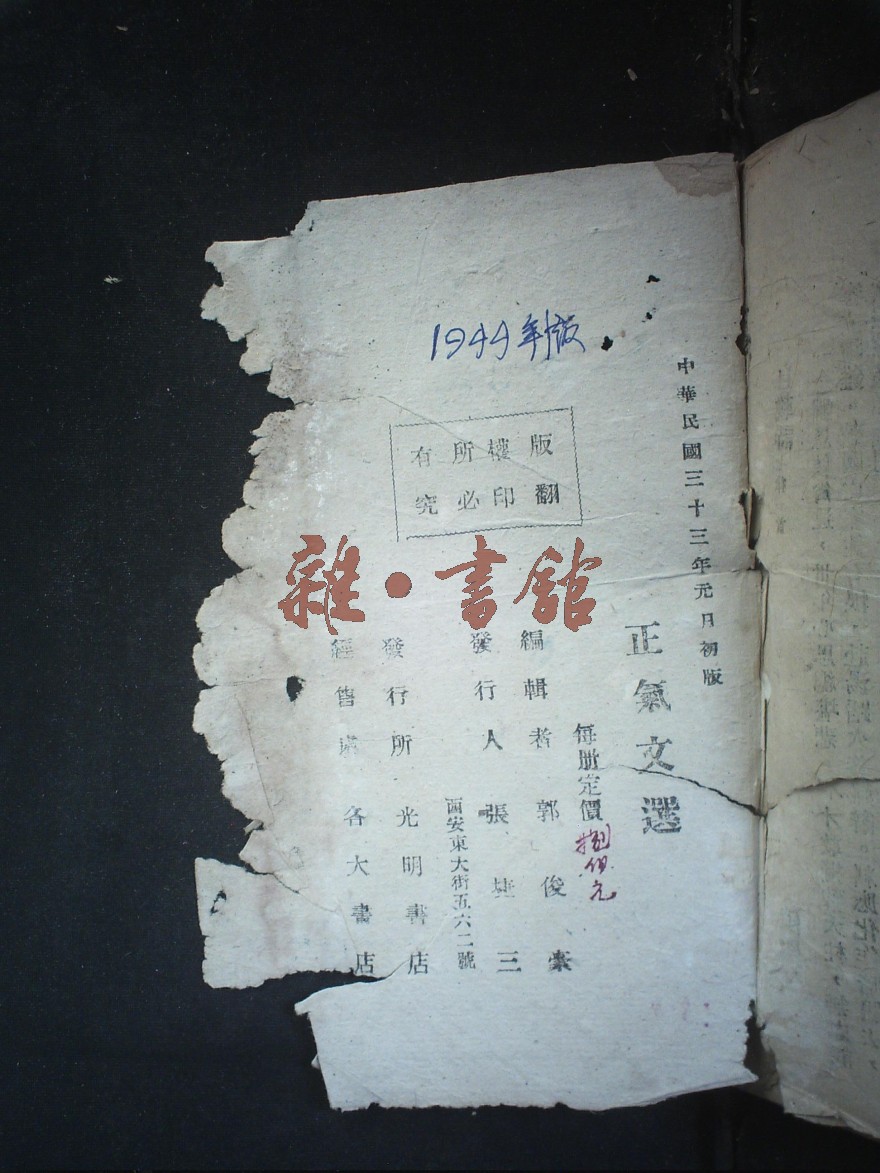 1944年版
中華民國三十三年元月初版
版權所有
翻印必究
正氣文選
每册定價
編輯者 郭俊
發行人 張 三
西安東大街五六二號
發行所 光明書店
經售處 各大書店
雜·書館